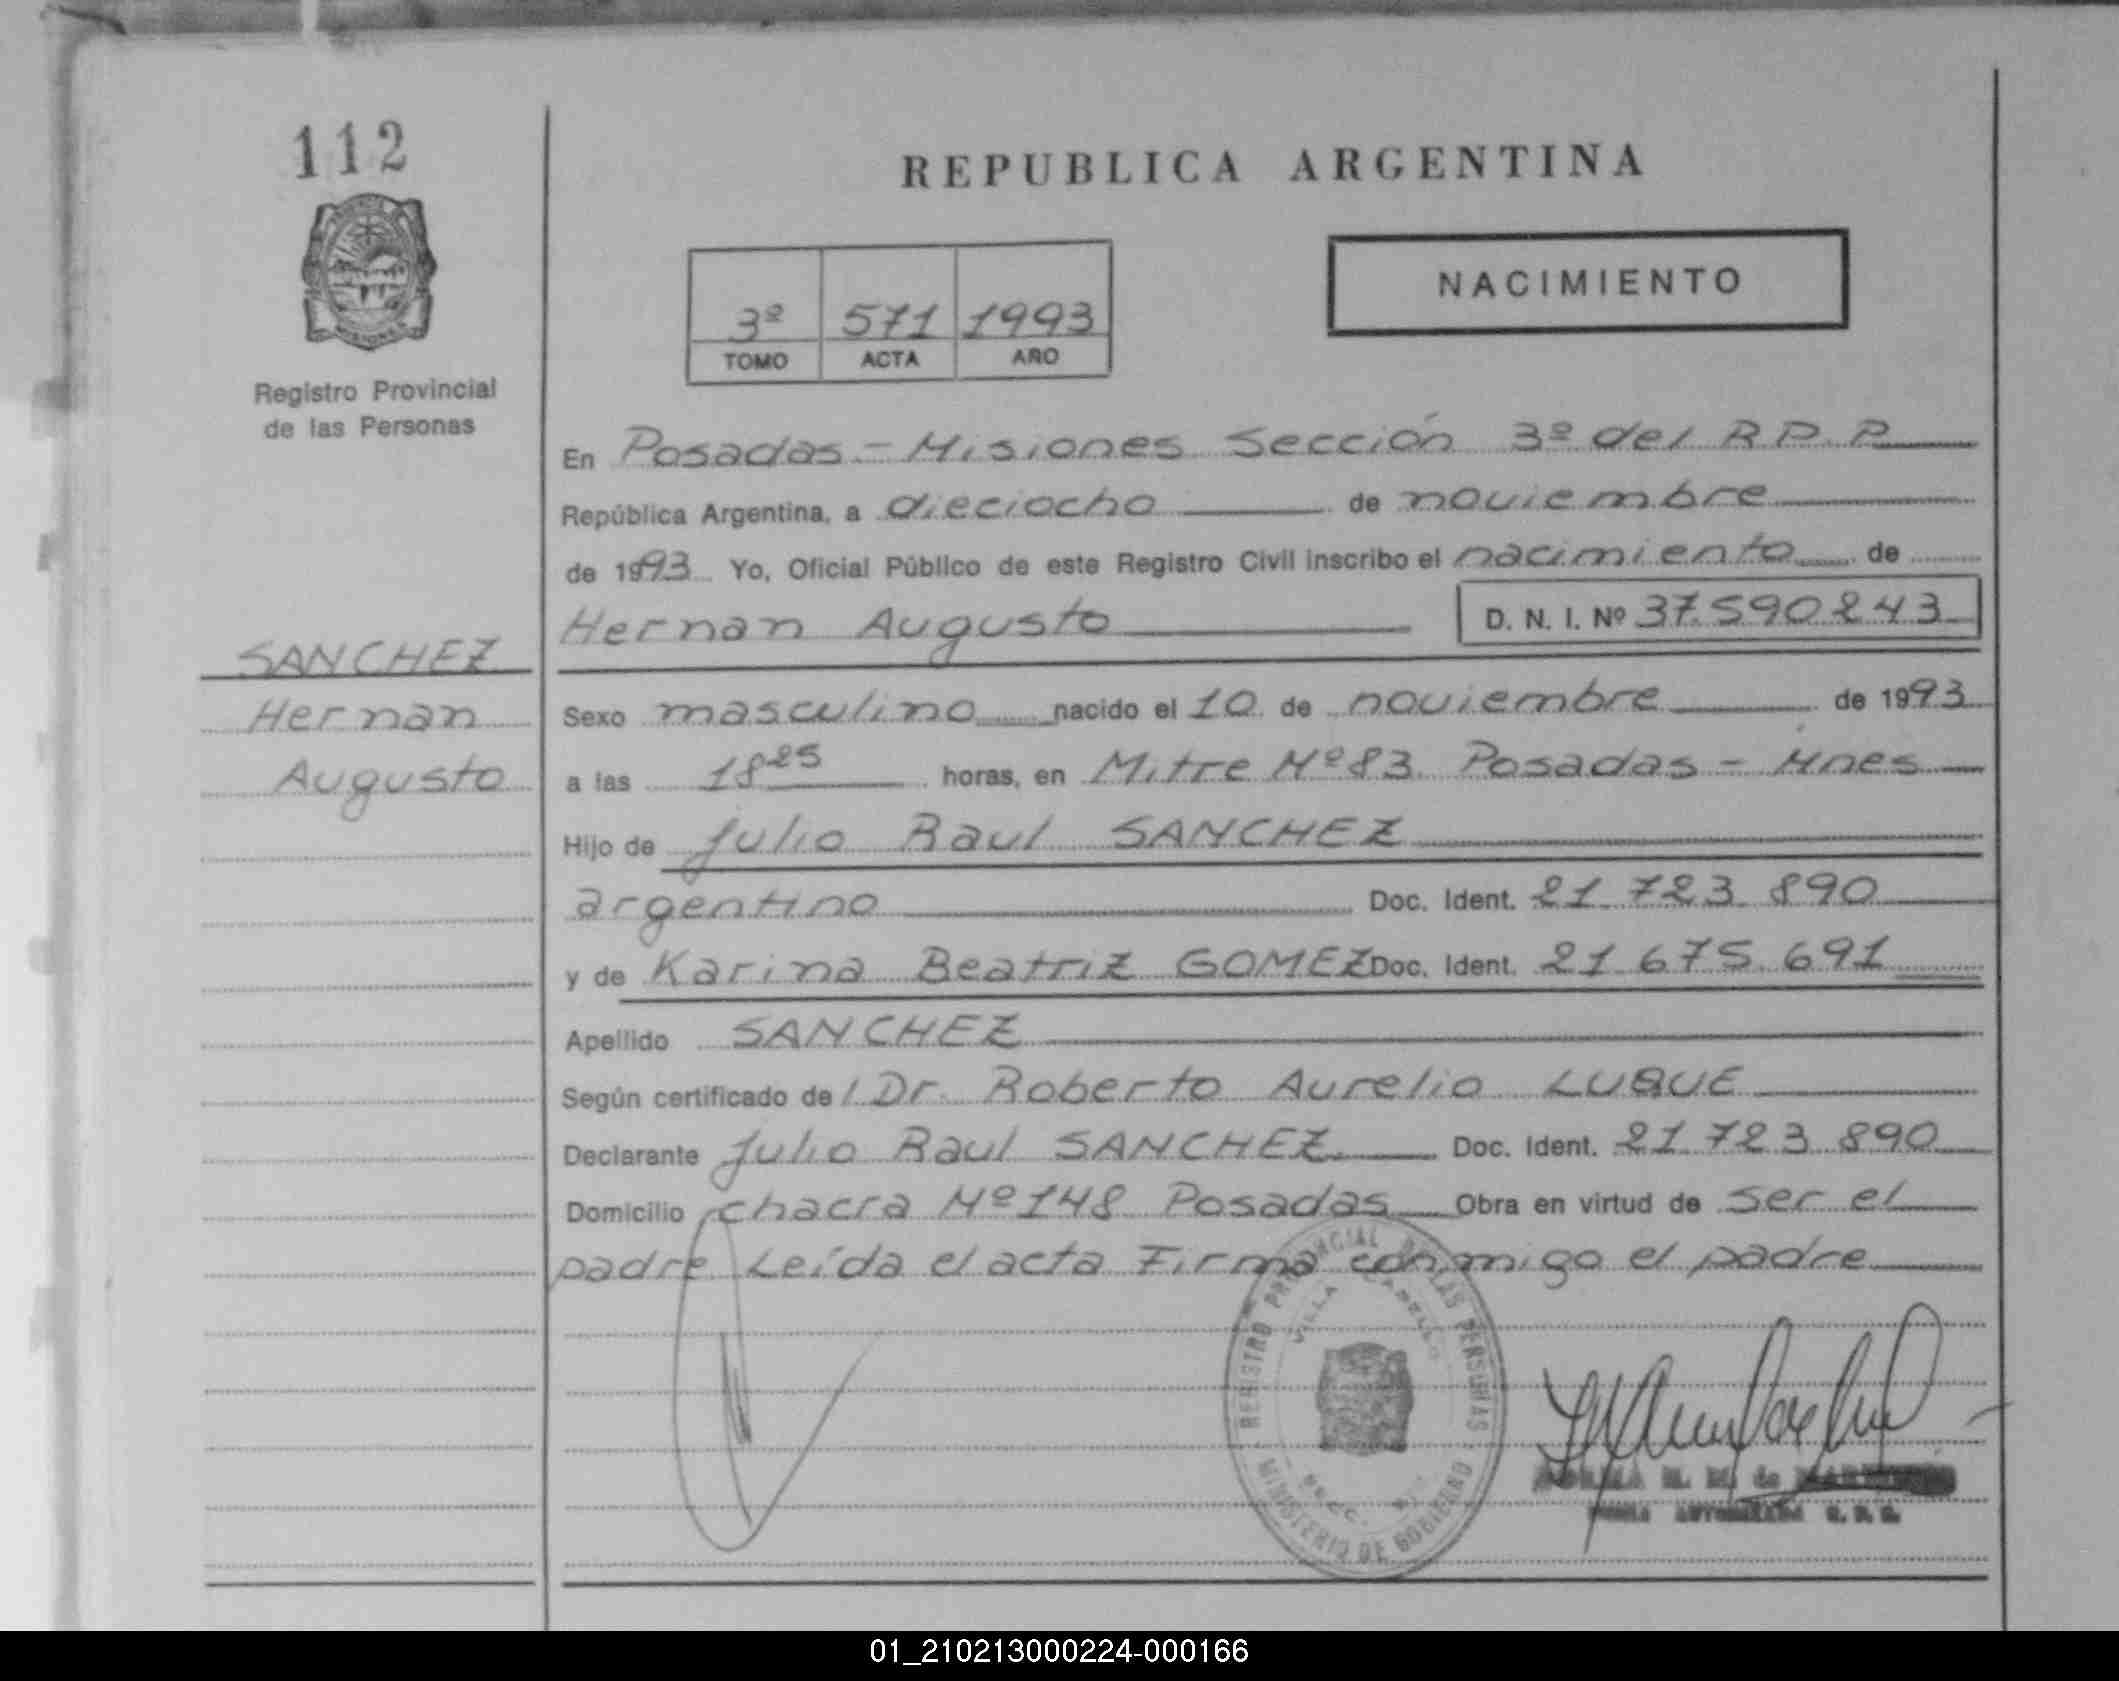 112
REPUBLICA ARGENTINA
NACIMIENTO
3º 571 1993
TOMO ACTA AÑO
Registro Provincial
de las Personas
En Posadas - Misiones Sección 3º del R.P.P.
República Argentina, a dieciocho de noviembre
de 1993 Yo, Oficial Público de este Registro Civil inscribo el nacimiento de
Hernan Augusto D. N. I. Nº 37.590243
SANCHEZ
Hernan
Augusto
Sexo masculino nacido el 10 de noviembre de 1993
a las 18 25 horas, en Mitre Nº 83 Posadas - Mnes
Hijo de Julio Raul SANCHEZ
argentino Doc. Ident. 21 723 890
y de Karina Beatriz GOMEZ Doc. Ident. 21 675 691
Apellido SANCHEZ
Según certificado de / Dr. Roberto Aurelio LUQUE
Declarante Julio Raul SANCHEZ Doc. Ident. 21 723 890
Domicilio chacra Nº 148 Posadas Obra en virtud de ser el
padre Leída el acta Firma conmigo el padre
REGISTRO PROVINCIAL DE LAS PERSONAS
VILLA
MINISTERIO DE GOBIERNO
01_210213000224-000166